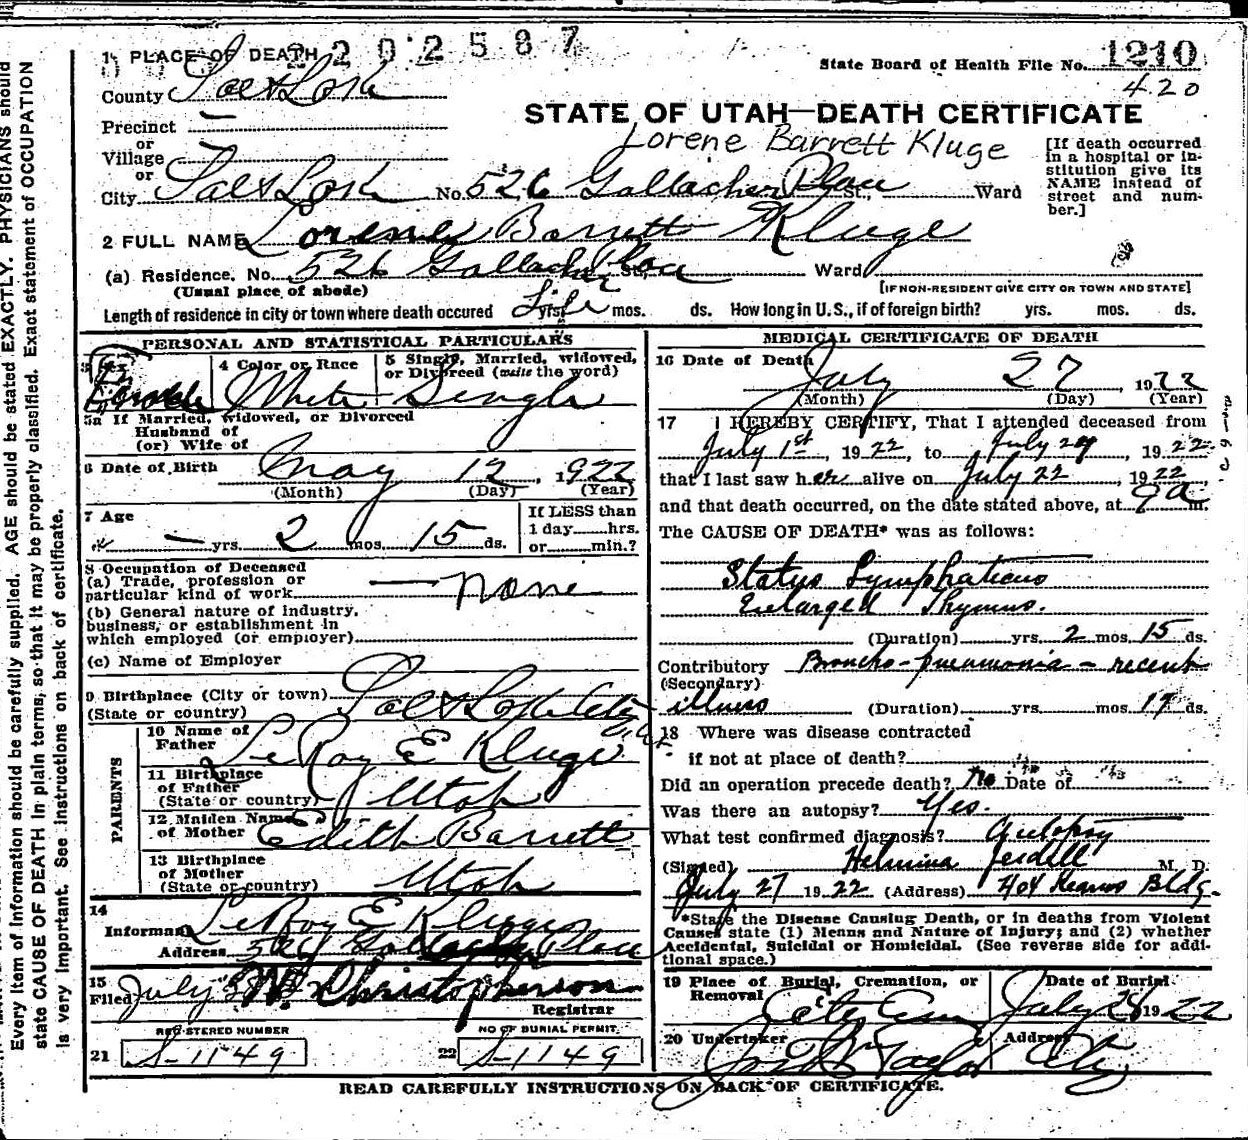 1 PLACE OF DEATH 202587
State Board of Health File No. 1210
County Salt Lake
420
STATE OF UTAH—DEATH CERTIFICATE
Precinct
or
Village
or
Lorene Barrett Kluge
[If death occurred in a hospital or institution give its NAME instead of street and number.]
City Salt Lake No. 526 Gallacher Place St., Ward
2 FULL NAME Lorene Barrett Kluge
(a) Residence. No. 526 Gallacher Place St., Ward
(Usual place of abode)
[IF NON-RESIDENT GIVE CITY OR TOWN AND STATE]
Length of residence in city or town where death occured Life yrs. mos. ds. How long in U.S., if of foreign birth? yrs. mos. ds.
PERSONAL AND STATISTICAL PARTICULARS
3 Sex Female
4 Color or Race White
5 Single, Married, widowed, or Divorced (write the word) Single
5a If Married, widowed, or Divorced
Husband of
(or) Wife of
6 Date of Birth May 12, 1922
(Month) (Day) (Year)
7 Age — yrs. 2 mos. 15 ds.
If LESS than
1 day hrs.
or min.?
8 Occupation of Deceased
(a) Trade, profession or
particular kind of work — none
(b) General nature of industry,
business, or establishment in
which employed (or employer)
(c) Name of Employer
9 Birthplace (City or town) Salt Lake City
(State or country) Utah
PARENTS
10 Name of
Father LeRoy E Kluge
11 Birthplace
of Father
(State or country) Utah
12 Maiden Name
of Mother Edith Barrett
13 Birthplace
of Mother
(State or country) Utah
14
Informant LeRoy E Kluge
Address 526 Gallacher Place
15
Filed July W. Christopherson
Registrar
REGISTERED NUMBER
NO OF BURIAL PERMIT
21 S-1149
22 S-1149
MEDICAL CERTIFICATE OF DEATH
16 Date of Death July 27, 1922
(Month) (Day) (Year)
17 I HEREBY CERTIFY, That I attended deceased from
July 1st, 1922, to July 27, 1922
that I last saw her alive on July 22, 1922,
and that death occurred, on the date stated above, at 9a m.
The CAUSE OF DEATH* was as follows:
Status Lymphaticus
Enlarged Thymus.
(Duration) yrs. 2 mos. 15 ds.
Contributory Broncho-pneumonia - recent
(Secondary)
illness (Duration) yrs. mos. 17 ds.
18 Where was disease contracted
if not at place of death?
Did an operation precede death? No Date of
Was there an autopsy? Yes.
What test confirmed diagnosis? Autopsy
(Signed) Helmina Jeidell M. D.
July 27 1922 (Address) 404 Kearns Bldg.
*State the Disease Causing Death, or in deaths from Violent
Causes state (1) Means and Nature of Injury; and (2) whether
Accidental, Suicidal or Homicidal. (See reverse side for addi-
tional space.)
19 Place of Burial, Cremation, or
Removal City Cem
Date of Burial
July 28 1922
20 Undertaker Jos Wm Taylor
Address City
READ CAREFULLY INSTRUCTIONS ON BACK OF CERTIFICATE.
Every item of information should be carefully supplied. AGE should be stated EXACTLY. PHYSICIANS should
state CAUSE OF DEATH in plain terms, so that it may be properly classified. Exact statement of OCCUPATION
is very important. See instructions on back of certificate.